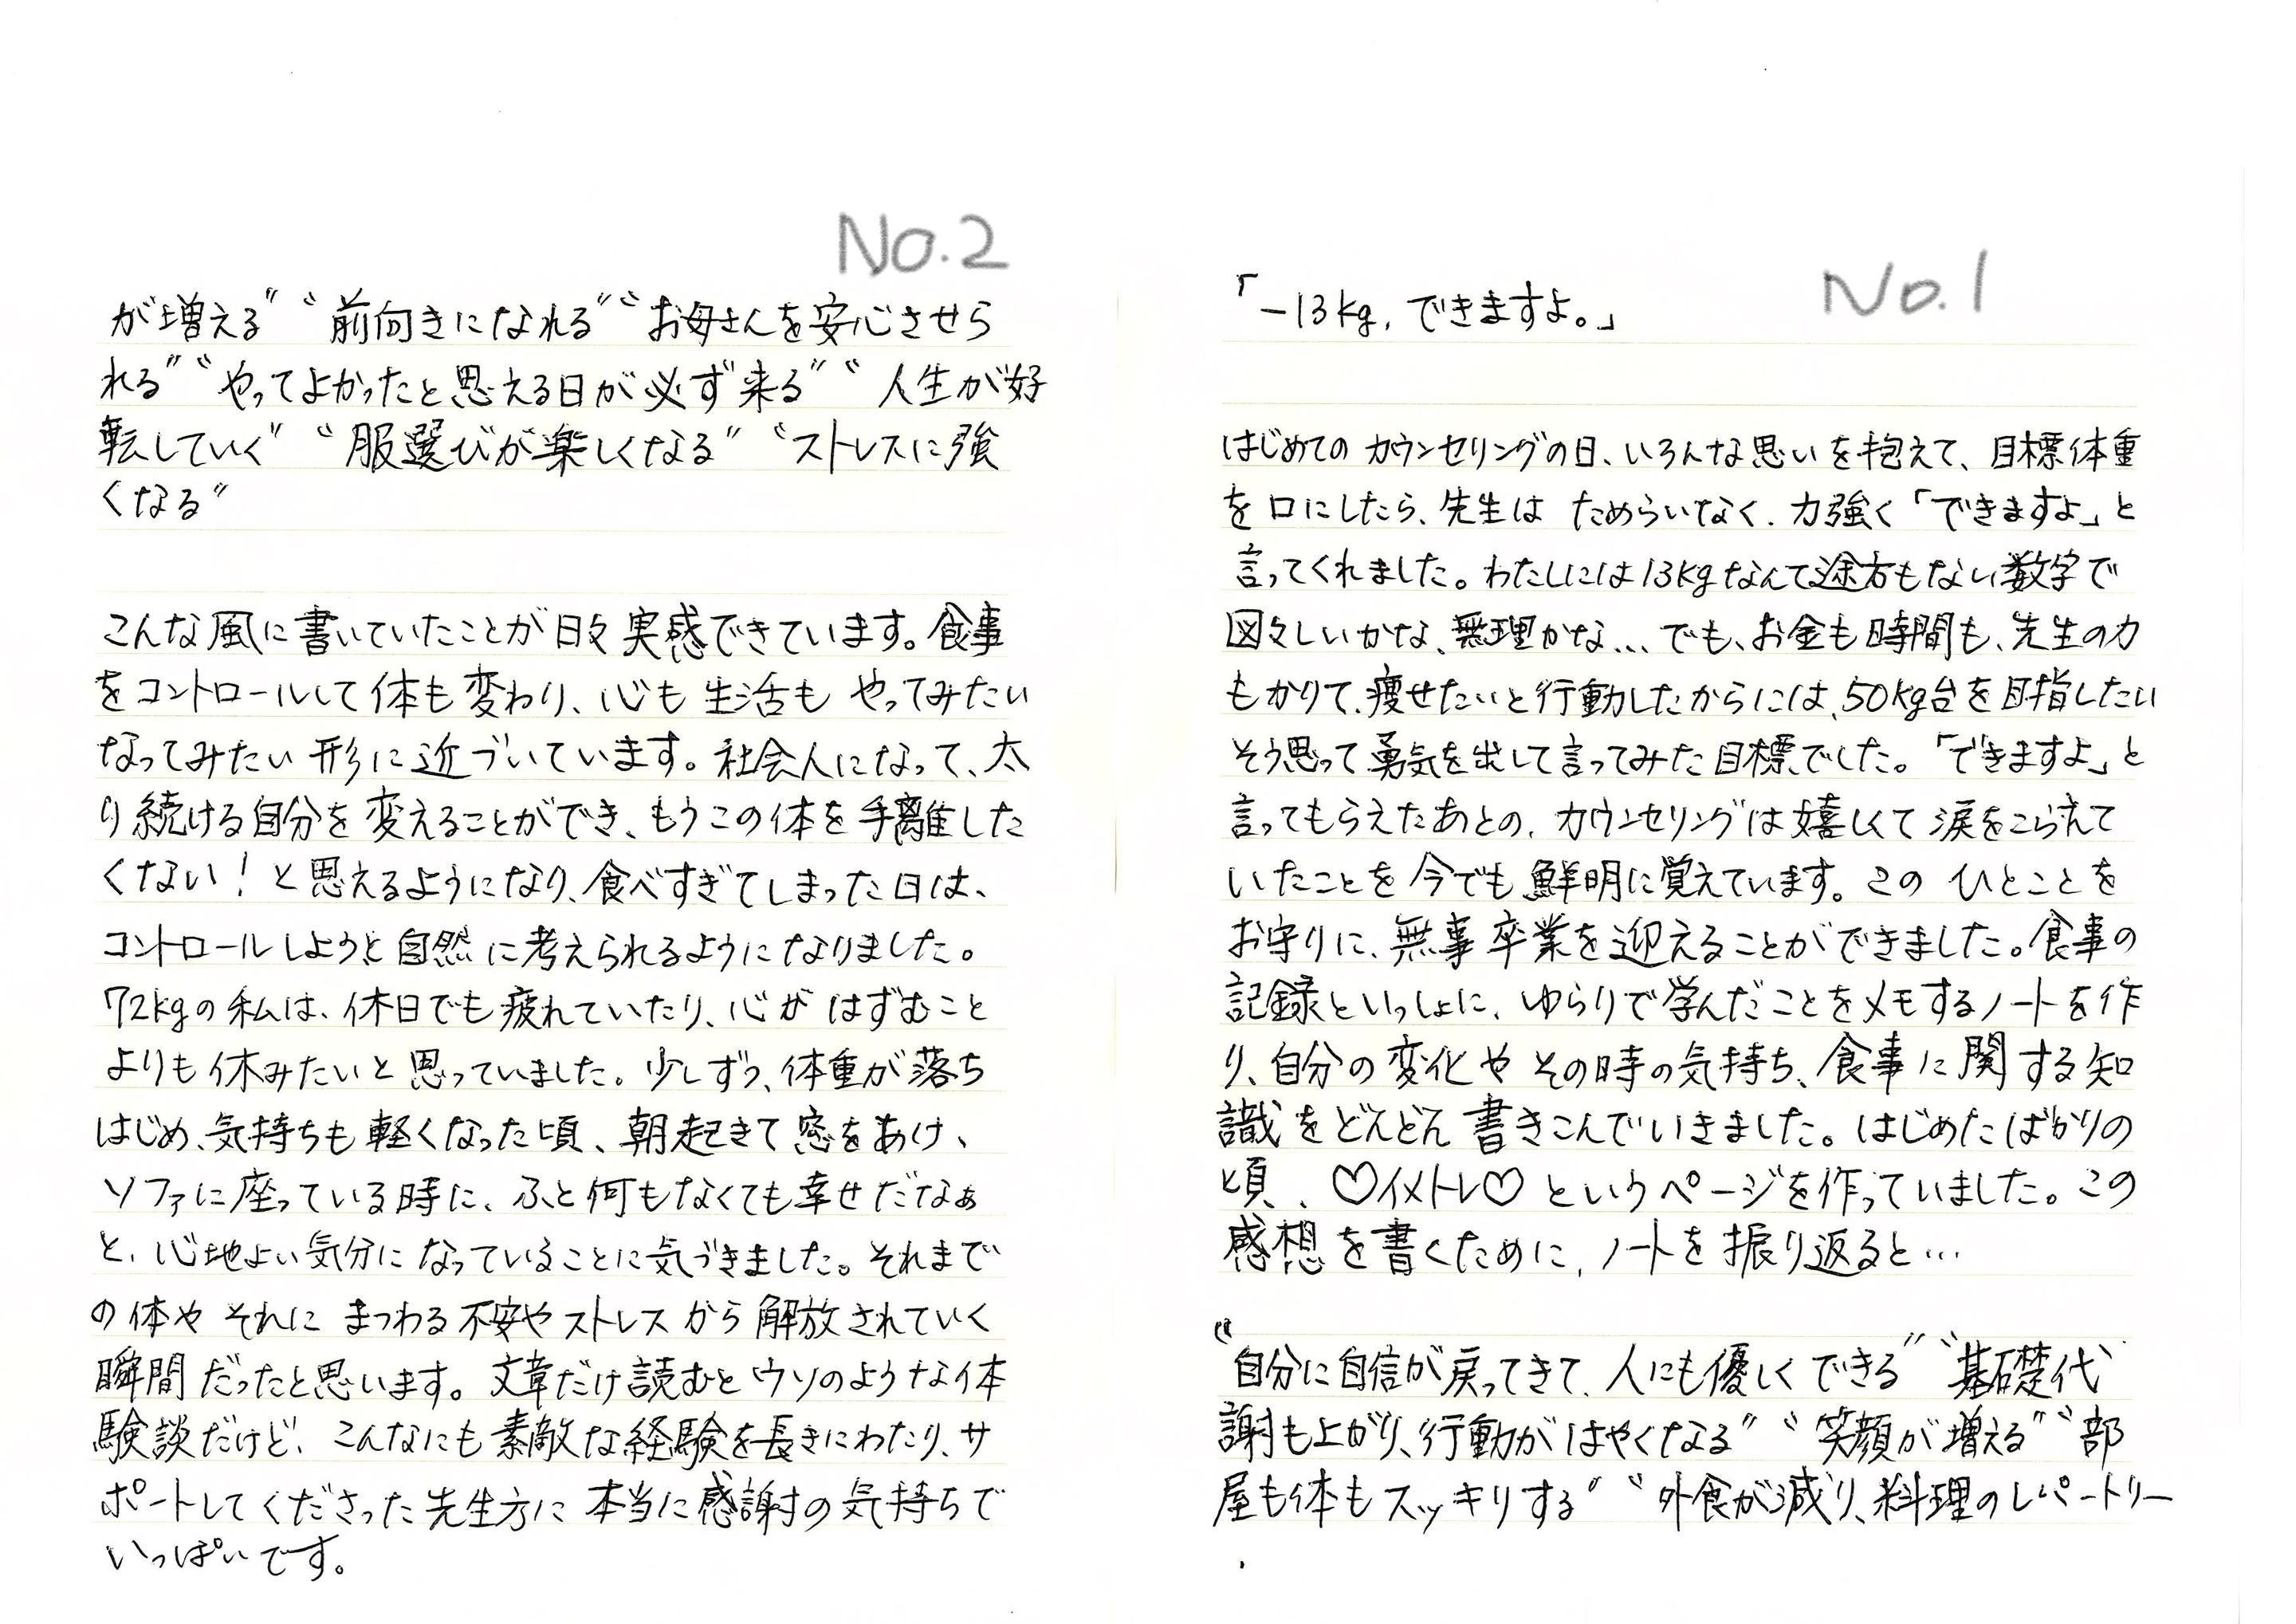 No.1
「－13kg, できますよ。」
はじめての カウンセリングの日、いろんな思いを抱えて、目標体重
を口にしたら、先生は ためらいなく、力強く「できますよ」と
言ってくれました。わたしには13kgなんて途方もない数字で
図々しいかな、無理かな…でも、お金も時間も、先生の力
もかりて、痩せたいと行動したからには、50kg台を目指したい
そう思って勇気を出して言ってみた目標でした。「できますよ」と
言ってもらえたあとの、カウンセリングは嬉しくて涙をこらえて
いたことを今でも鮮明に覚えています。この ひとことを
お守りに、無事卒業を迎えることができました。食事の
記録といっしょに、ゆらりで学んだことをメモするノートを作
り、自分の変化や その時の気持ち、食事に関する知
識をどんどん書きこんでいきました。はじめたばかりの
頃、♡イメトレ♡ というページを作っていました。この
感想を書くために、ノートを振り返ると…
“自分に自信が戻ってきて、人にも優しくできる” “基礎代
謝も上がり、行動がはやくなる” “笑顔が増える” “部
屋も体もスッキリする” “外食が減り、料理のレパートリー
No.2
が増える” “前向きになれる” “お母さんを安心させら
れる” “やってよかったと思える日が必ず来る” “人生が好
転していく” “服選びが楽しくなる” “ストレスに強
くなる”
こんな風に書いていたことが日々実感できています。食事
をコントロールして体も変わり、心も生活も やってみたい
なってみたい形に近づいています。社会人になって、太
り続ける自分を変えることができ、もうこの体を手離した
くない！と思えるようになり、食べすぎてしまった日は、
コントロールしようと自然に考えられるようになりました。
72kgの私は、休日でも疲れていたり、心が はずむこと
よりも休みたいと思っていました。少しずつ、体重が落ち
はじめ、気持ちも軽くなった頃、朝起きて窓をあけ、
ソファに座っている時に、ふと何もなくても幸せだなぁ
と、心地よい気分になっていることに気づきました。それまで
の体や それに まつわる不安やストレスから解放されていく
瞬間だったと思います。文章だけ読むとウソのような体
験談だけど、こんなにも素敵な経験を長きにわたり、サ
ポートしてくださった先生方に本当に感謝の気持ちで
いっぱいです。